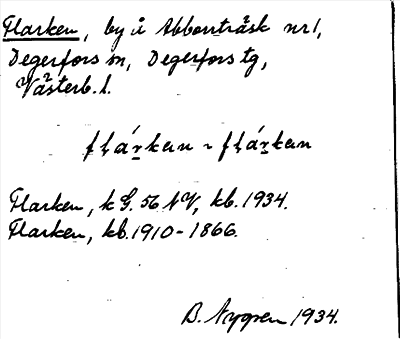 Flarken, by å Abborrträsk nr 1,
Degerfors sn, Degerfors tg,
Västerb. l.
fḷáṛkɐn ~ fḷáṛkɐn
Flarken, k G. 56 NV, kb. 1934.
Flarken, kb. 1910-1866.
B. Nygren 1934.